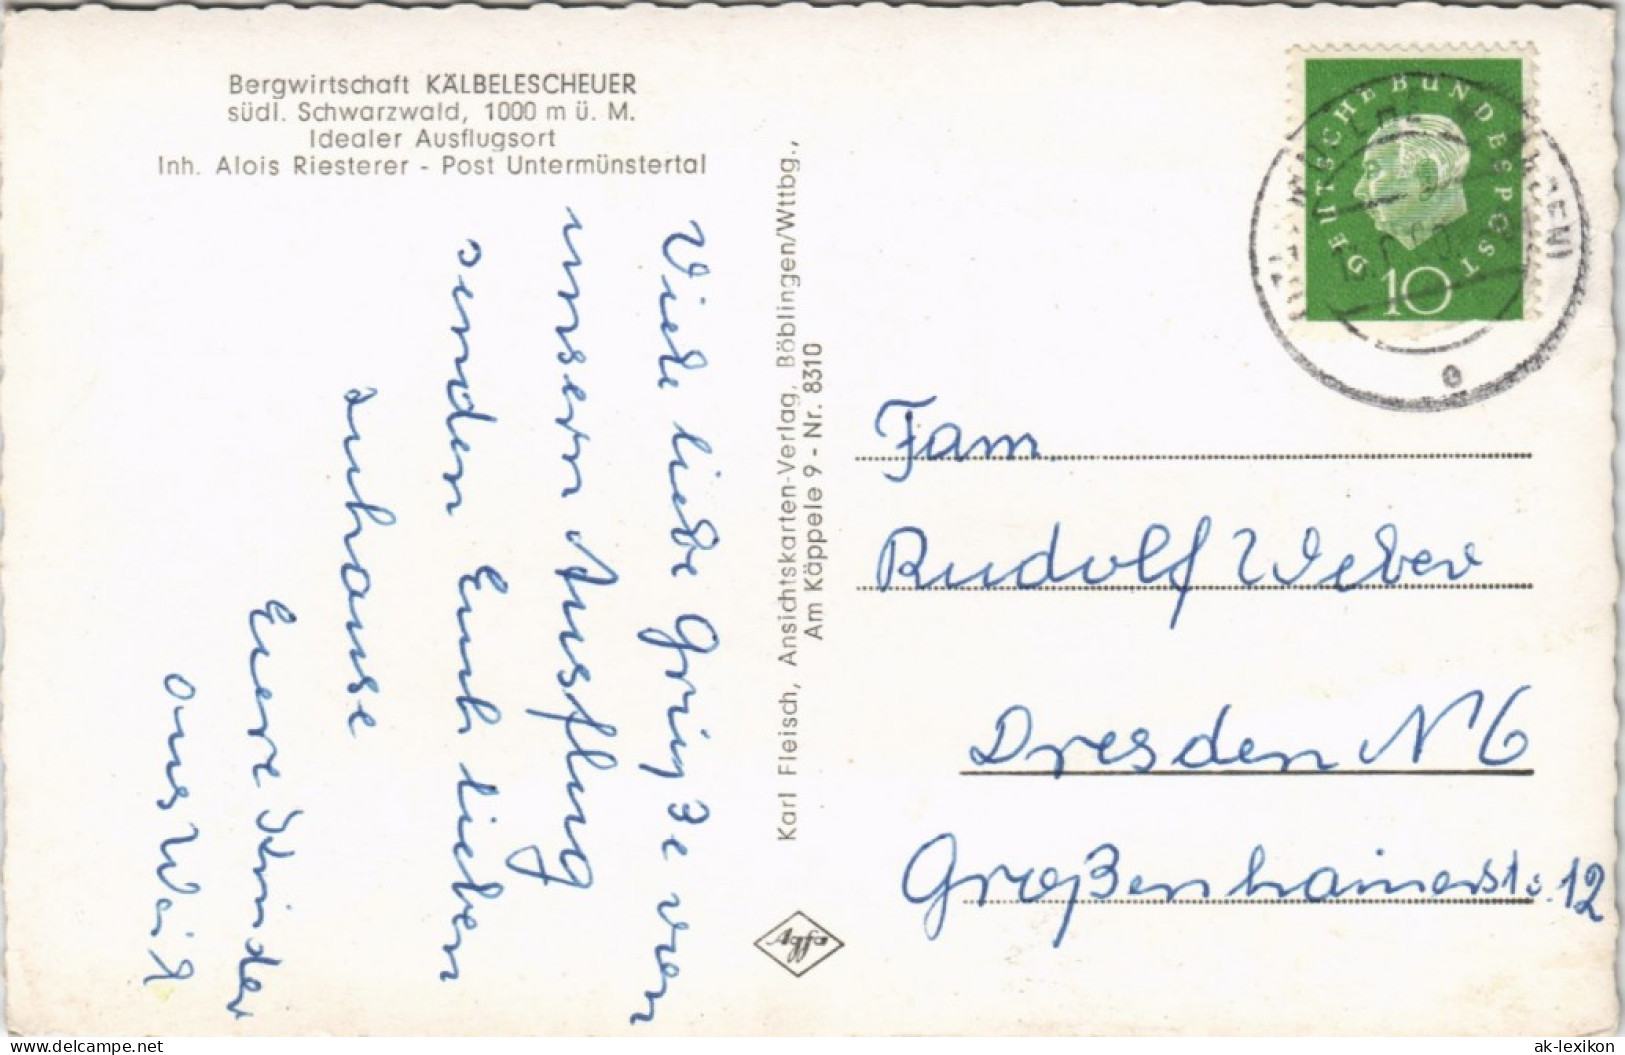 Bergwirtschaft KÄLBELESCHEUER
südl. Schwarzwald, 1000 m ü. M.
Idealer Ausflugsort
Inh. Alois Riesterer - Post Untermünstertal
Viele liebe Grüße von
unsern Ausflug
senden Euch lieben
zuhause
Eure Kinder
aus Weil
Karl Fleisch, Ansichtskarten-Verlag, Böblingen/Wttbg.,
Am Käppele 9 - Nr. 8310
Agfa
DEUTSCHE BUNDESPOST
10
e
Fam.
Rudolf Weber
Dresden N 6
Großenhainerst: 12
www.delcampe.net
ak-lexikon